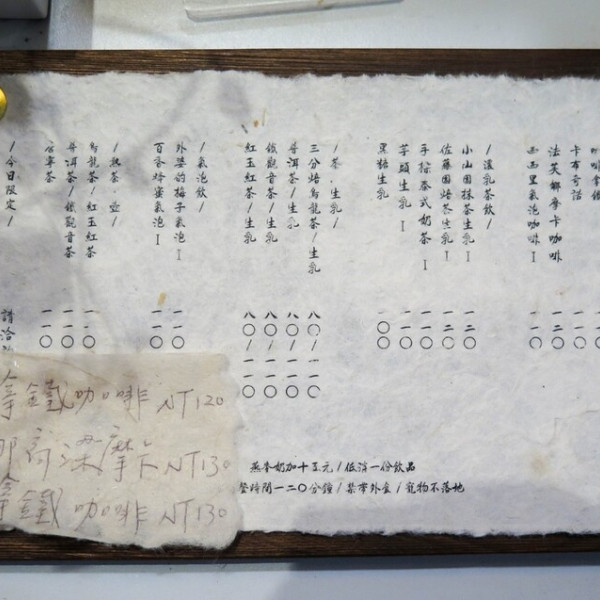 卡布奇諾
一二〇
法芙娜摩卡咖啡
一二〇
西西里氣泡咖啡 I
一一〇
/濃乳茶飲/
小山園抹茶生乳 I
一二〇
佐藤園焙茶生乳 I
一二〇
手採泰式奶茶 I
一一〇
芋頭生乳 I
一一〇
黑糖生乳
一〇〇
/茶.生乳/
三分焙烏龍茶/生乳
八〇/一一〇
普洱茶/生乳
八〇/一一〇
鐵觀音茶/生乳
八〇/一一〇
紅玉紅茶/生乳
八〇/一一〇
/氣泡飲/
外婆的梅子氣泡 I
一一〇
百香蜂蜜氣泡 I
一一〇
/熱茶.壺/
烏龍茶/紅玉紅茶
一一〇
普洱茶/鐵觀音茶
一一〇
一一〇
/今日限定/
請洽
燕麥奶加十五元/低消一份飲品
時間一二〇分鐘/禁帶外食/寵物不落地
拿鐵咖啡 NT120
高粱摩卡 NT130
拿鐵咖啡 NT130